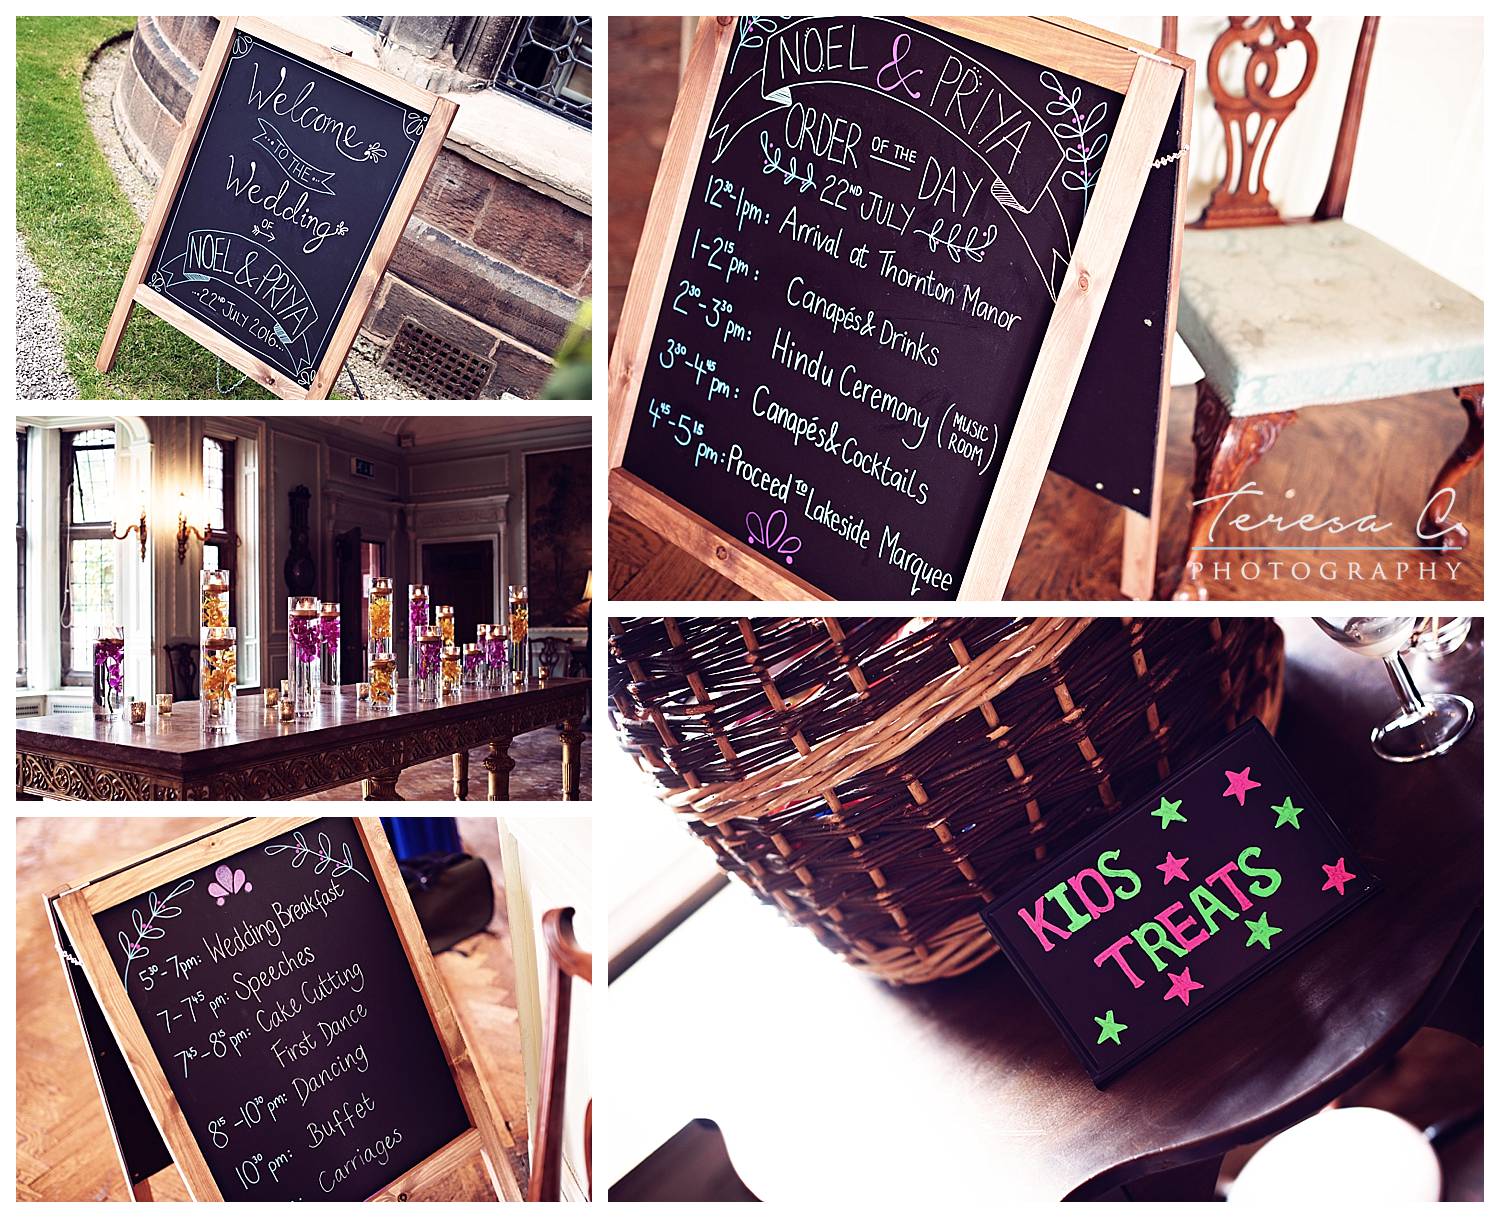 Welcome
...TO THE...
Wedding
OF
NOEL & PRIYA
...22ND JULY 2016...
NOEL & PRIYA
ORDER OF THE DAY
22ND JULY
12³⁰-1pm: Arrival at Thornton Manor
1-2¹⁵pm: Canapés & Drinks
2³⁰-3³⁰pm: Hindu Ceremony (MUSIC ROOM)
3³⁰-4⁴⁵pm: Canapés & Cocktails
4⁴⁵-5¹⁵pm: Proceed TO Lakeside Marquee
Teresa C
PHOTOGRAPHY
5³⁰-7pm: Wedding Breakfast
7-7⁴⁵pm: Speeches
7⁴⁵-8¹⁵pm: Cake Cutting
First Dance
8¹⁵-10³⁰pm: Dancing
10³⁰pm: Buffet
Carriages
KIDS
TREATS